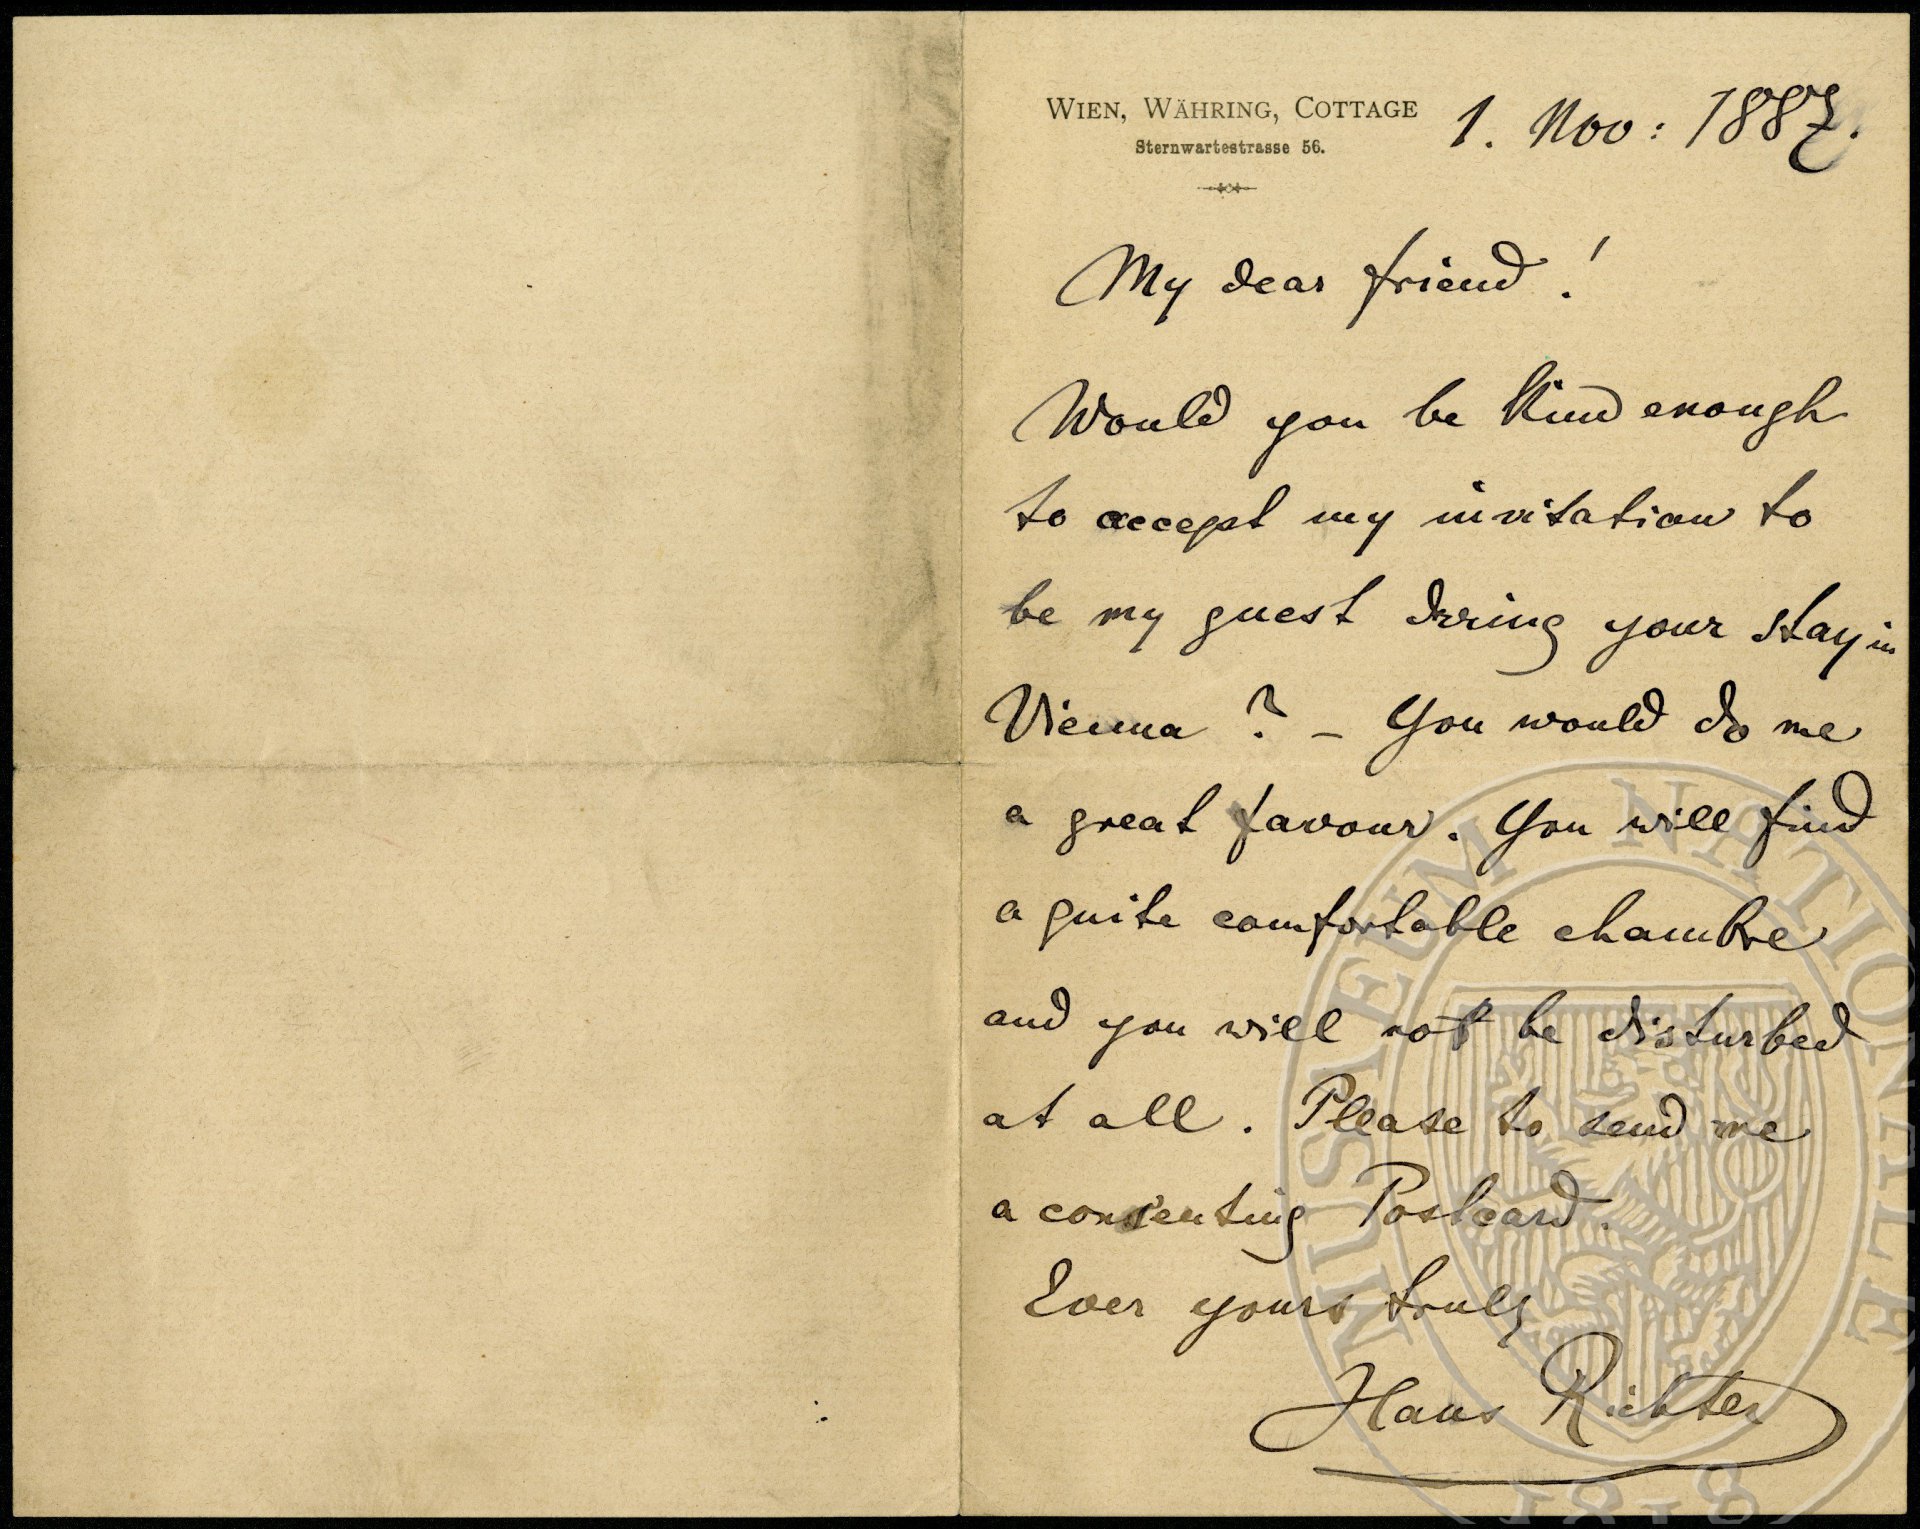 WIEN, WÄHRING, COTTAGE
Sternwartestrasse 56.
1. Nov: 1887.
My dear friend!
Would you be kind enough
to accept my invitation to
be my guest during your stay in
Vienna? – You would do me
a great favour. You will find
a quite comfortable chambre
and you will not be disturbed
at all. Please to send me
a consenting Postcard.
Ever yours truly
Hans Richter
MUSAEUM NATIONALE
1818